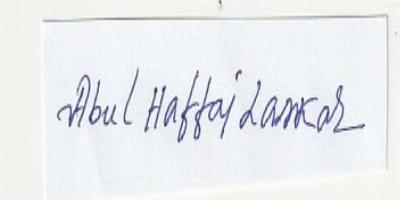 Abul Haffaj Laskar